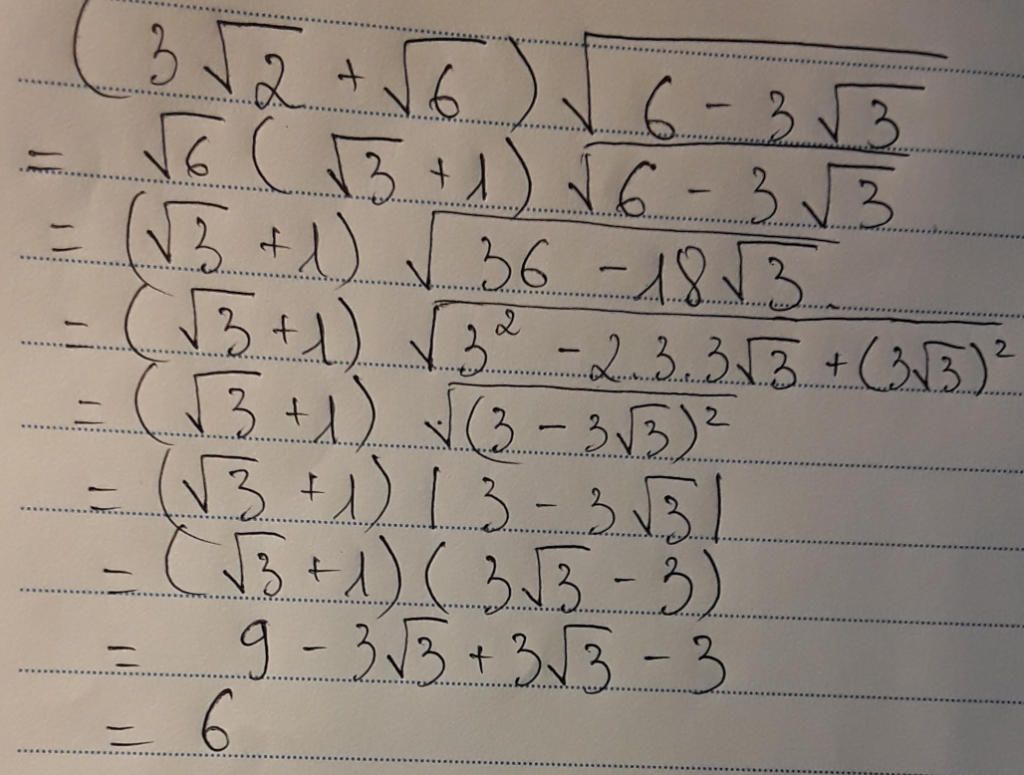 (3√2 + √6) √(6 - 3√3)
= √6 (√3 + 1) √(6 - 3√3)
= (√3 + 1) √(36 - 18√3)
= (√3 + 1) √(3² - 2.3.3√3 + (3√3)²)
= (√3 + 1) √((3 - 3√3)²)
= (√3 + 1) |3 - 3√3|
= (√3 + 1)(3√3 - 3)
= 9 - 3√3 + 3√3 - 3
= 6